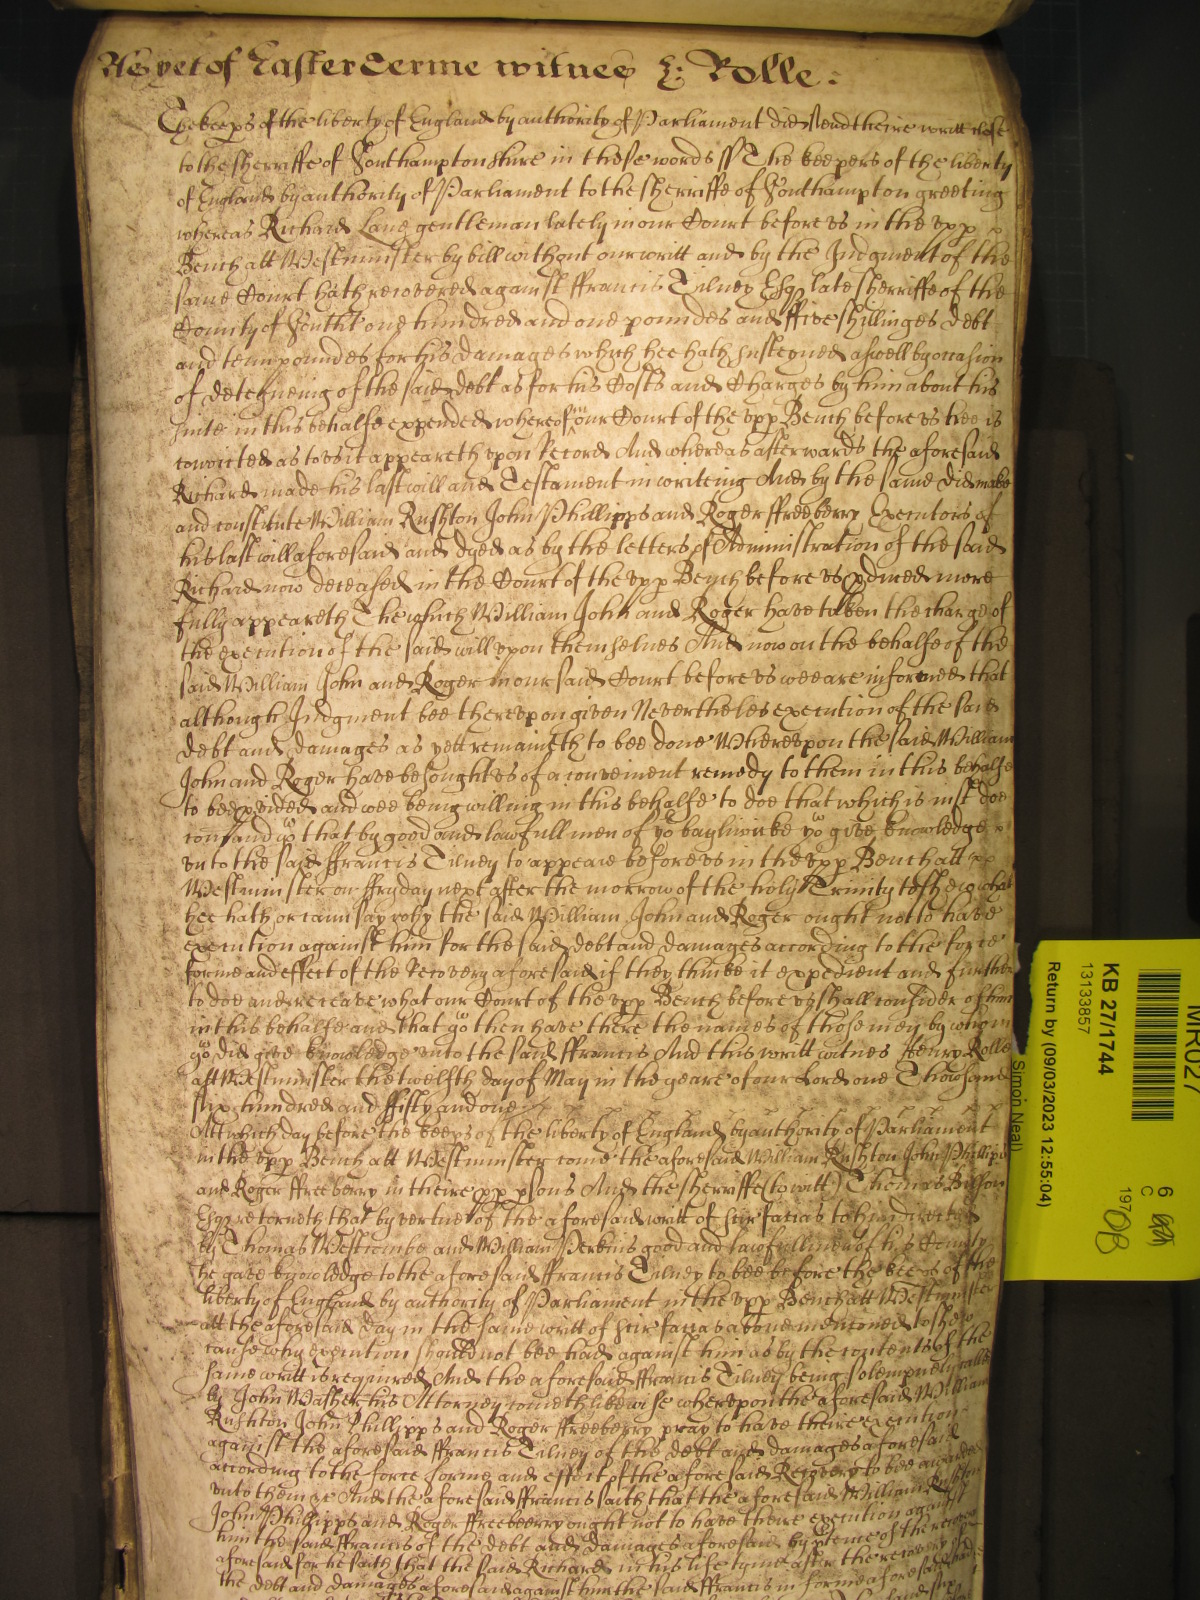 As yet of Easter Terme witnes H: Rolle:
The keeps of the liberty of England by authority of Parliament did send theire writt close
to the sherriffe of Southamptonshire in these words ss The keepers of the liberty
of England by authority of Parliament to the sherriffe of Southampton greeting
whereas Richard Lane gentleman lately in our Court before vs in the vpp
Bench att Westminster by bill without our writt and by the Judgment of the
same Court hath recovered against ffrancis Tilney Esqr late sherriffe of the
County of Southt one hundred and one poundes and ffive shillinges debt
and tenn poundes for his damages which hee hath susteyned aswell by occasion
of deteyneing of the said debt as for his Costs and Charges by him about his
suite in this behalfe expended whereof in our Court of the vpp Bench before vs hee is
convicted as to vs it appeareth vpon Record And whereas afterwards the aforesaid
Richard made his last will and Testament in writeing And by the same did make
and constitute William Rushton John Phillipps and Roger ffreeberry Executors of
his last will aforesaid and dyed as by the letters of Administration of the said
Richard now deceased in the Court of the vpp Bench before vs pduced more
fully appeareth The which William John and Roger have taken the charge of
the execution of the said will vpon themselues And now on the behalfe of the
said William John and Roger in our said Court before vs wee are informed that
although Judgment bee therevpon given Neverthelesse execution of the said
debt and damages as yett remaineth to bee done Wherevpon the said William
John and Roger have besought vs of a convenient remedy to them in this behalfe
to bee pvided and wee being willing in this behalfe to doe that which is iust doe
comand yow that by good and lawfull men of yor bayliwicke yow give knowledge
vnto the said ffrancis Tilney to appeare before vs in the vpp Bench att
Westminster on ffryday next after the morrow of the holy Trinity to shew what
hee hath or cann say why the said William John and Roger ought not to have
execution against him for the said debt and damages according to the force
forme and effect of the Recovery aforesaid if they thinke it expedient and further
to doe and receave what our Court of the vpp Bench before vs shall consider of him
in this behalfe and that yow then have there the names of those men by whom
yow did give knowledge vnto the said ffrancis And this writt witnes Henry Rolle
att Westminster the twelfth day of May in the yeare of our Lord one Thowsand
six hundred and ffifty and one
Att which day before the keeps of the liberty of England by authority of Parliament
in the vpp Bench att Westminster come the aforesaid William Rushton John Phillipps
and Roger ffreeberry in theire pp psons And the sherriffe (to witt) Thomas Bilson
Esqr retorneth that by vertue of the aforesaid writt of scir facias to him directed
by Thomas Westcombe and William Perkins good and lawfull men of his County
he gave knowledge to the aforesaid ffrancis Tilney to bee before the keeps of the
liberty of England by authority of Parliament in the vpp Bench att Westminster
att the aforesaid day in the same writt of scir facias above mencioned to shew
cause why execution should not bee had against him as by the contents of the
same writt is required And the aforesaid ffrancis Tilney being solempnely called
by John Washer his Attorney cometh likewise wherevpon the aforesaid William
Rushton John Phillipps and Roger ffreeberry pray to have theire execution
against the aforesaid ffrancis Tilney of the debt and damages aforesaid
according to the force forme and effect of the aforesaid Recovery to bee awarded
vnto them &c And the aforesaid ffrancis saith that the aforesaid William Rushton
John Phillipps and Roger ffreeberry ought not to have there execution against
him the said ffrancis of the debt and damages aforesaid by ptence of the recovery
aforesaid for he saith that the said Richard in his life tyme after the recovery of
the debt and damages aforesaid against him the said ffrancis in forme aforesaid had
MR027
KB 27/1744
13133857
Return by (09/03/2023 12:55:04)
Simon Neal)
6
C
197